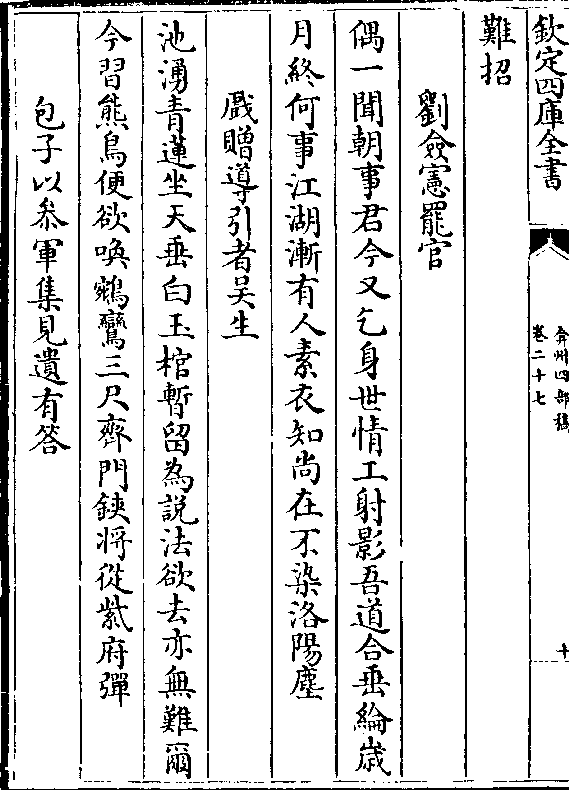 欽定四庫全書
弇州四部稿
卷二十七
十
難招
劉僉憲罷官
偶一聞朝事君今又乞身世情工射影吾道合垂綸歳
月終何事江湖漸有人素衣知尚在不染洛陽塵
戲贈導引者吴生
池湧青蓮坐天垂白玉棺暫留為說法欲去亦無難爾
今習熊鳥便欲喚鵷鸞三尺齊門鋏將從紫府彈
包子以叅軍集見遺有答